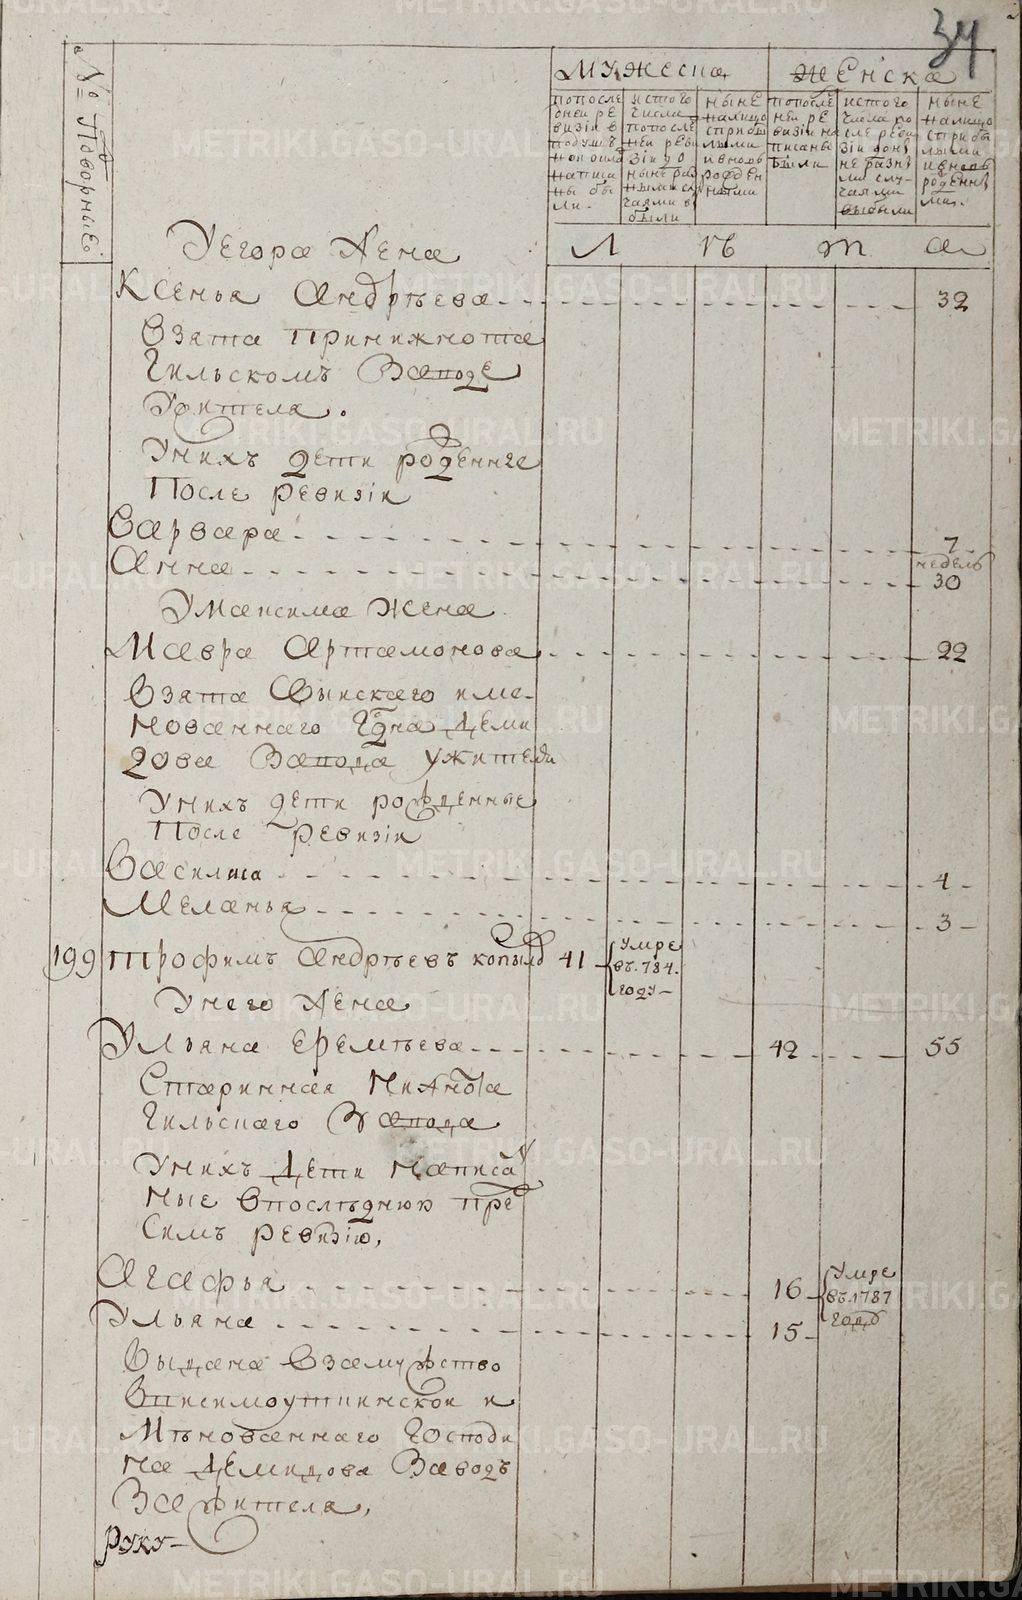 34
№ Подворные
мужеска
женска
попосле
дней ре
визіи в
подуш
ной окла
написа
ны бы
ли
истого
числа
попосле
ней реви
зіи до
ныне раз
ными слу
чаями в
были
ныне
налицо
сприбы
лыми
ивновь
рожден
ными
попосле
ней ре
визіи на
писаны
были
истого
числа по
сле реви
зіи доны
не разны
ми слу-
чаями
выбыли
ныне
налицо
сприбы
лыми
ивновь
рожденны
ми
Л ѣ т а
Уегора Жена
Ксенья Андрѣева 32
Взята принижнота
гильскомъ Заводе
Ужителя.
Унихъ дети рожденые
После ревизіи
Варвара 7
недель
Анна 30
Умаксима жена
Мавра Артамонова 22
Взята Свыискаго име-
нованнаго Гдна Деми
дова Завода ужителя
Унихъ дети рожденные
После ревизіи
Василиса 4
Меланья 3
199 Трофимъ Андрѣевъ копылов 41 Умре
въ 784.
году
Унего Жена
Ульяна Еремѣева 42 55
Старинная Нижнота
гильскаго Завода
Унихъ Дети написан
ные впослѣднюю пред
Симъ ревизію,
Агафья 16 Умре
въ 1787
году
Ульяна 15
Выдана взамужство
Вписимоуткинской и
мѣнованнаго Господи
на Демидова Заводъ
За жителя,
руку
METRIKI.GASO-URAL.RU